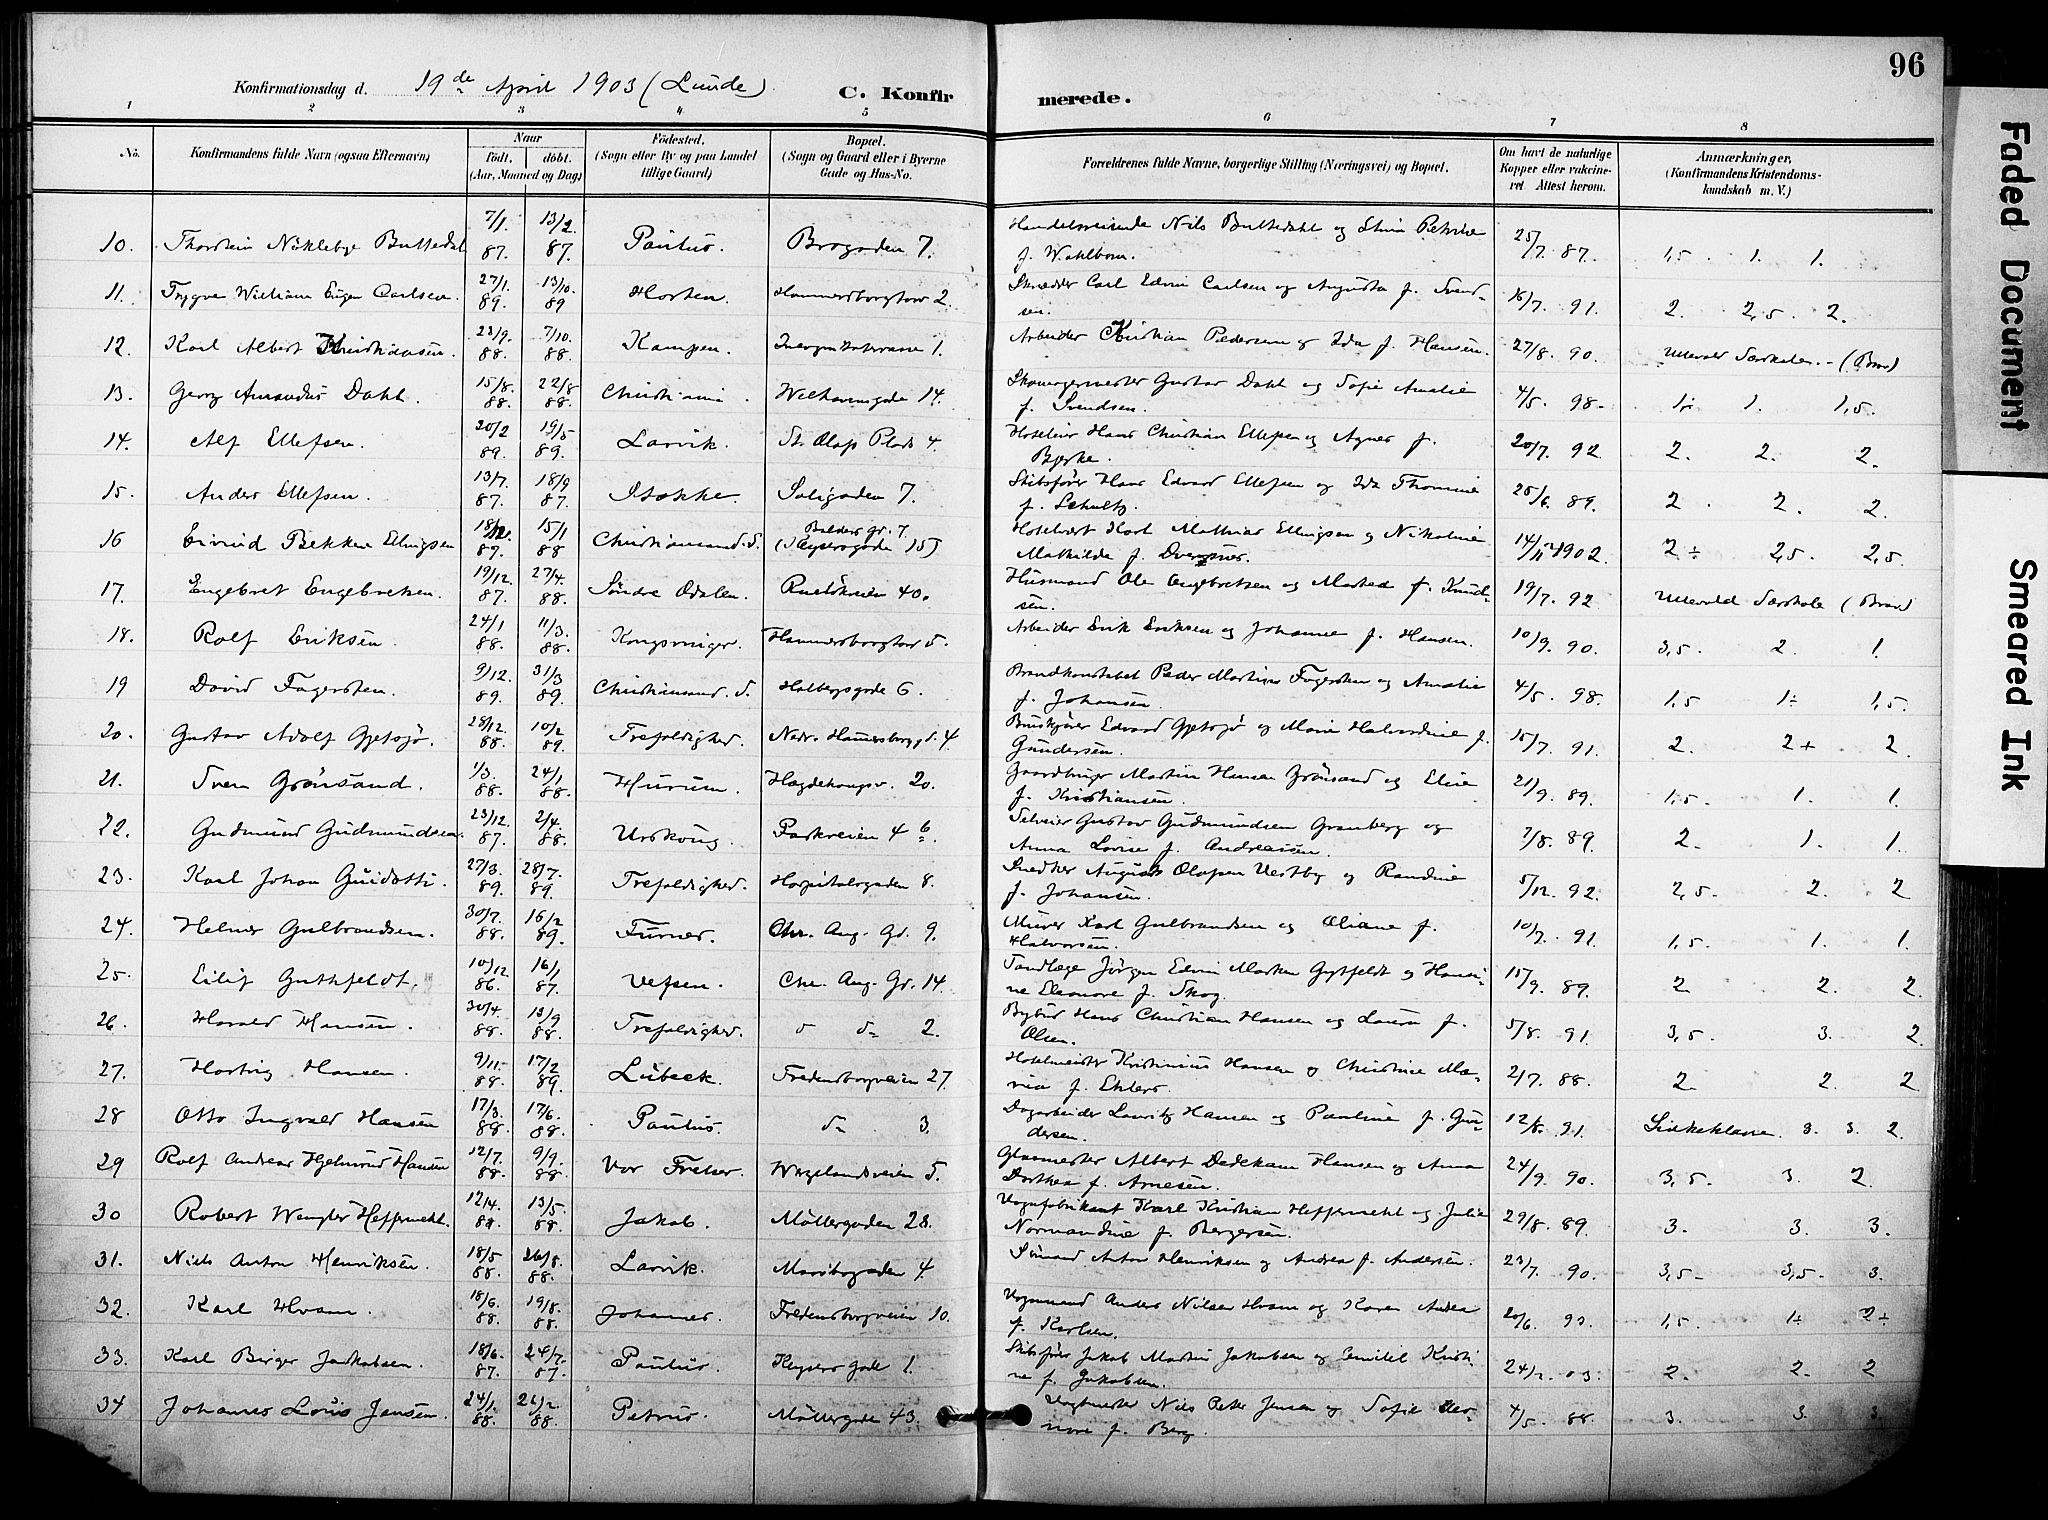 96
Konfirmationsdag d. 19de April 1903 (Lunde)
C. Konfirmerede.
1 2 3 4 5 6 7 8
No.
Konfirmandens fulde Navn (ogsaa Efternavn)
Naar
födt. döbt.
(Aar, Maaned og Dag)
Födested.
(Sogn eller By og paa Landet
tillige Gaard)
Bopæl.
(Sogn og Gaard eller i Byerne
Gade og Hus-No.
Forældrenes fulde Navne, borgerlige Stilling (Næringsvei) og Bopæl.
Om havt de naturlige
Kopper eller vakcine-
ret. Attest herom.
Anmærkninger,
(Konfirmandens Kristendoms-
kundskab m. V.)
10. Thorstein Buttedal 7/1. 87. 13/2 87. Paulus. Brogaden 7. Handelsreisende Nils Buttedahl og Petrine
f. Wahlbom. 25/7. 87. 1,5. 1. 1.
11. Trygve William Eugen Carlsen. 27/1. 89. 13/10. 89 Horten. Hammersborgtorv 2. Skrædder Carl Edvin Carlsen og Augusta f. Svend-
sen. 16/7. 91. 2. 2,5. 2.
12. Karl Albert Kristiansen. 23/9. 88. 7/10. 88. Kampen. 1. Arbeider Kristian Pedersen og Ida f. Hansen. 27/8. 90. Ullevold Særskole. - (Brav)
13. Georg Amandus Dahl. 15/8. 88. 22/8 88. Christiania. Welhavensgade 14. Skomagermester Gustav Dahl og Sofie Amalie
f. Svendsen. 4/5. 98. 1. 1,5.
14. Alf Ellefsen. 20/2 89. 19/5 89. Larvik. St. Olafs Plads 4. Hans Christian Ellefsen og Agnes f.
Bjerke. 20/7. 92. 2. 2. 2.
15. Anders Ellefsen. 13/7. 87. 18/9 87. Stokke. Soligaden 7. Skibsfører Hans Edvard Ellefsen og Ida Thomine
f. Schultz. 25/6. 89. 2. 2. 2.
16 Eivind Bekken Ellingsen 18/12. 87. 15/1 88 Christiansand. S. Balders gd. 7.
(Keysersgade 15) Hotelvært Karl Mathias Ellingsen og Nikoline
Mathilde f. 14/11 1902. 2 ÷ 2,5. 2,5.
17. Engebret Engebretsen. 19/12. 87. 27/4. 88. Söndre Odalen. Ruslökveien 40. Husmand Ole Engebretsen og Marthea f. Knud-
sen. 19/7. 92 Ullevold Særskole (Brav)
18. Rolf Eriksen. 24/1 88. 11/3. 88. Kongsvinger. Hammersborgtorv 5. Arbeider Erik Eriksen og Johanne f. Hansen. 10/9. 90. 3,5. 2. 1.
19 David Fagersten. 9/12. 89. 31/3 89. Christiansand. S. Holbergsgade 6. Brandkonstabel Peder Martinus Fagersten og Amalie
f. Johansen. 4/5. 98. 1,5 1÷ 1,5.
20. Gustav Adolf Gjetsjö. 28/12. 88. 10/2 89. Trefoldighed. Nedre Hammersborg gd. 4. Edvard Gjetsjö og Marie Halvordine f.
Gundersen. 15/7. 91. 2. 2+ 2.
21. Sven Grönsand. 1/3. 88. 24/1 88. Hurum. Hægdehaugsv. 20. Gaardbruger Martin Hansen Grönsand og Eline
f. Kristiansen. 21/9. 89. 1,5. 1. 1.
22. Gudmund Gudmundsen. 23/12. 87. 2/4. 88. Urskoug. Parkveien 4 b. Gustav Gudmundsen Granberg og
Anna Lovise f. Andreassen. 7/8. 89. 2. 1. 1.
23. Karl Johan Guidotti. 27/3. 89. 28/7. 89. Trefoldighed. Hospitalsgaden 8. Snedker August Olafsen Vestby og Randine
f. Johansen. 5/12. 92. 2,5. 2. 2
24. Helmer Gulbrandsen. 30/7. 88. 16/2 89. Furnes. Chr. Aug. Gd. 9. Murer Karl Gulbrandsen og Oliane f.
Halvorsen. 10/7. 91. 1,5. 1. 1.
25. Eilif Guthfeldt. 10/12 86. 16/1 87. Vefsen. Chr. Aug. Gd. 14. Tandlæge Jörgen Edvin Gytfeldt og Hansi-
ne Eleonore f. Skog. 15/9. 89. 2 2. 2.
26. Harald Hansen. 30/4. 88. 13/9 88. Trefoldighed. 2. Bybud Hans Christian Hansen og Laura f.
Olsen. 5/8. 91. 3,5. 3. 2
27. Hartvig Hansen. 9/11. 88. 17/2 89. Lübeck. Fredensborgveien 27. Kristinius Hansen og Christine Ma-
ria f. Ehlers. 2/7. 88. 2 2. 2
28 Otto Ingvald Hansen 17/3. 88. 17/6. 88. Paulus. 3. Dagarbeider Lauritz Hansen og Pauline f. Gun-
dersen. 12/8. 91. Sinkeklasse. 3. 3. 2.
29 Rolf Andreas Hjelmrud Hansen 12/7. 88. 9/9. 88. Vor Frelser. Wergelandsveien 5. Glasmester Albert Dedekam Hansen og Anna
Dorthea f. Arnesen. 24/9. 90. 3,5. 3. 2.
30 Robert Wengler Heffermehl. 12/4. 88. 13/5 88. Jakob. Möllergaden 28. Vognfabrikant Karl Kristian Heffermehl og Julie
Normandine f. Bergersen. 29/8. 89. 3. 3. 3.
31. Niels Anton Henriksen. 18/5 88. 26/8. 88. Larvik. Maribogaden 4. Sömand Anton Henriksen og Andrea f. Andersen. 23/7. 90. 3,5- 3,5- 3.
32. Karl Hvam. 18/6. 88. 19/8. 88. Johannes. Fredensborgveien 10. Vognmand Anders Nilsen Hvam og Karen Andrea
f. Karlsen. 20/6. 1,5. 1÷ 2÷
33. Karl Birger Jakobsen. 18/6. 87. 24/7. 87. Paulus. Keysers Gade 1. Skibsfører Jakob Martin Jakobsen og Kristi-
ne f. Jakobsen. 24/2. 03. 2. 2. 2
34 Johannes Louis Jensen. 24/1. 88. 26/2. 88. Petrus. Möllergade 43. Nils Peter Jensen og Sofie Eleo-
nore f. Berg. 4/5. 88. 3. 3. 3
Faded Document
Smeared Ink